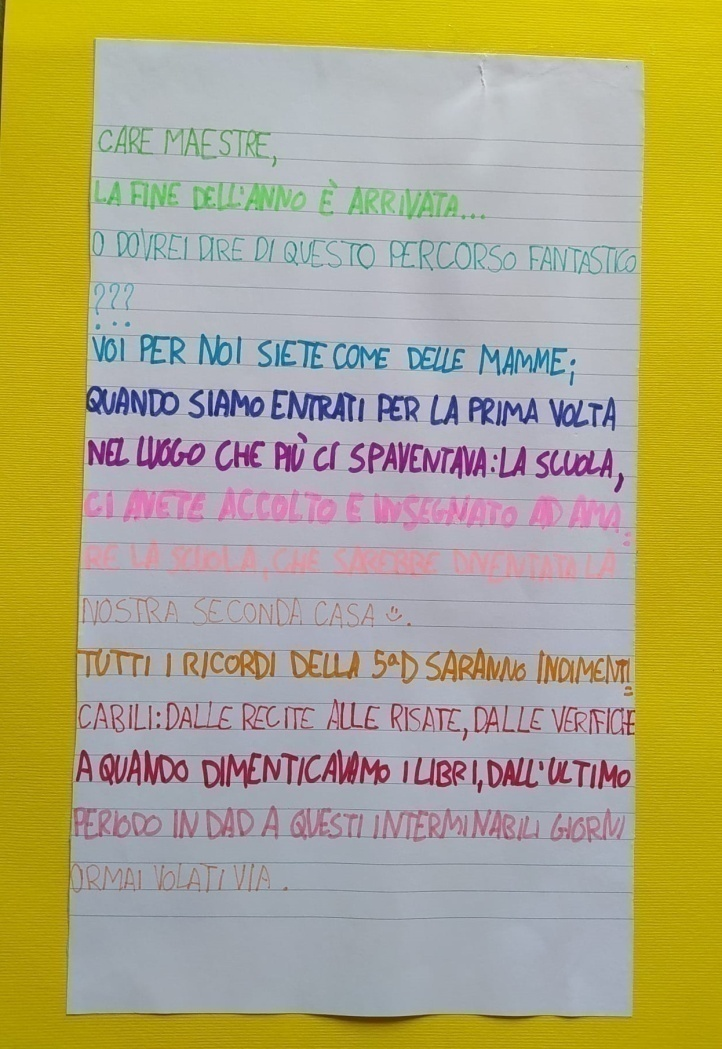 CARE MAESTRE,
LA FINE DELL'ANNO È ARRIVATA...
O DOVREI DIRE DI QUESTO PERCORSO FANTASTICO
???
VOI PER NOI SIETE COME DELLE MAMME;
QUANDO SIAMO ENTRATI PER LA PRIMA VOLTA
NEL LUOGO CHE PIÙ CI SPAVENTAVA: LA SCUOLA,
CI AVETE ACCOLTO E INSEGNATO AD AMA=
RE LA SCUOLA, CHE SAREBBE DIVENTATA LA
NOSTRA SECONDA CASA ☺.
TUTTI I RICORDI DELLA 5ªD SARANNO INDIMENTI=
CABILI: DALLE RECITE ALLE RISATE, DALLE VERIFICHE
A QUANDO DIMENTICAVAMO I LIBRI, DALL'ULTIMO
PERIODO IN DAD A QUESTI INTERMINABILI GIORNI
ORMAI VOLATI VIA.